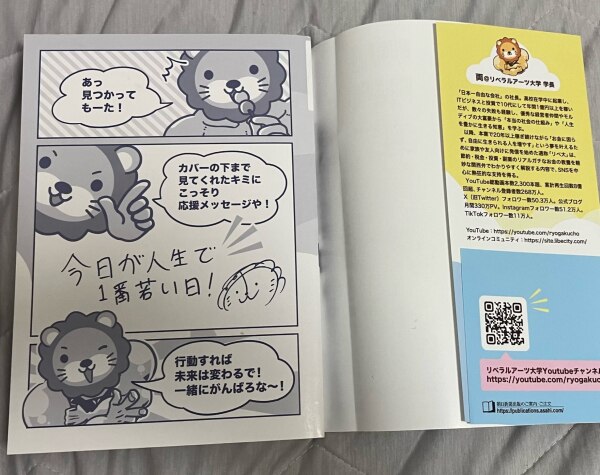 あっ
見つかって
もーた！
カバーの下まで
見てくれたキミに
こっそり
応援メッセージや！
今日が人生で
1番若い日！
行動すれば
未来は変わるで！
一緒にがんばろな〜！
両@リベラルアーツ大学 学長
「日本一自由な会社」の社長。高校在学中に起業し、
ITビジネスと投資で10代にして年間1億円以上を稼い
だが、数々の失敗も経験し、優秀な経営者仲間やモル
ディブの大富豪から「本当の社会の仕組み」や「人生
を豊かに生きる知恵」を学ぶ。
以降、本業で20年以上稼ぎ続けながら「お金に困ら
ず、自由に生きられる人を増やす」という夢を叶えるた
めに家族や友人向けに発信を始めた通称「リベ大」は、
節約・税金・投資・副業のリアルガチなお金の教養を軽
妙な関西弁でわかりやすく解説する内容で、SNSを中
心に熱狂的な支持を得る。
YouTube総動画本数2,300本超、累計再生回数
回超、チャンネル登録者数268万人。
X（旧Twitter）フォロワー数50.3万人。公式ブログ
月間330万PV。Instagramフォロワー数51.2万人。
TikTokフォロワー数11万人。
YouTube：https://youtube.com/ryogakucho
オンラインコミュニティ：https://site.libecity.com/
リベラルアーツ大学Youtubeチャンネル
https://youtube.com/ryogakucho
朝日新聞出版のご案内・ご注文
https://publications.asahi.com/